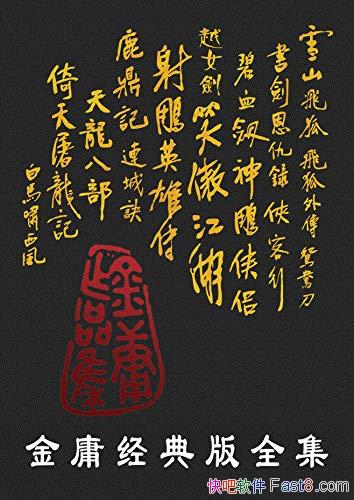 雪山飛狐 飛狐外傳 鴛鴦刀
書劍恩仇錄 俠客行
碧血劍 神鵰俠侶
笑傲江湖
越女劍
射鵰英雄傳
鹿鼎記 連城訣
天龍八部
倚天屠龍記
白馬嘯西風
金庸作品集
金庸经典版全集
快吧软件 Fast8.com